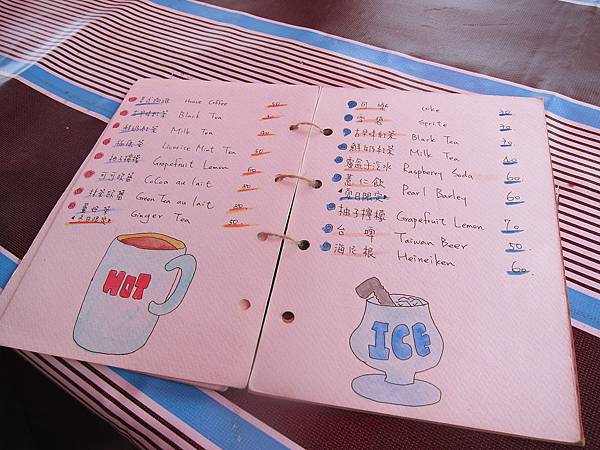 House Coffee 50
古早味紅茶 Black Tea 30
鮮奶紅茶 Milk Tea 40
Licorice Mint Tea 50
柚子檸檬 Grapefruit Lemon 60
可可歐蕾 CoCoa au lait
抹茶歐蕾 Green Tea au lait
薑母茶 Ginger Tea 50
冬日限定
HOT
可樂 Coke 30
雪碧 Sprite 30
古早味紅茶 Black Tea 30
鮮奶紅茶 Milk Tea 40
覆盆子汽水 Raspberry Soda 60
薏仁飲 Pearl Barley 60
夏日限定
柚子檸檬 Grapefruit Lemon 70
台啤 Taiwan Beer 50
海尼根 Heineiken 60
ICE